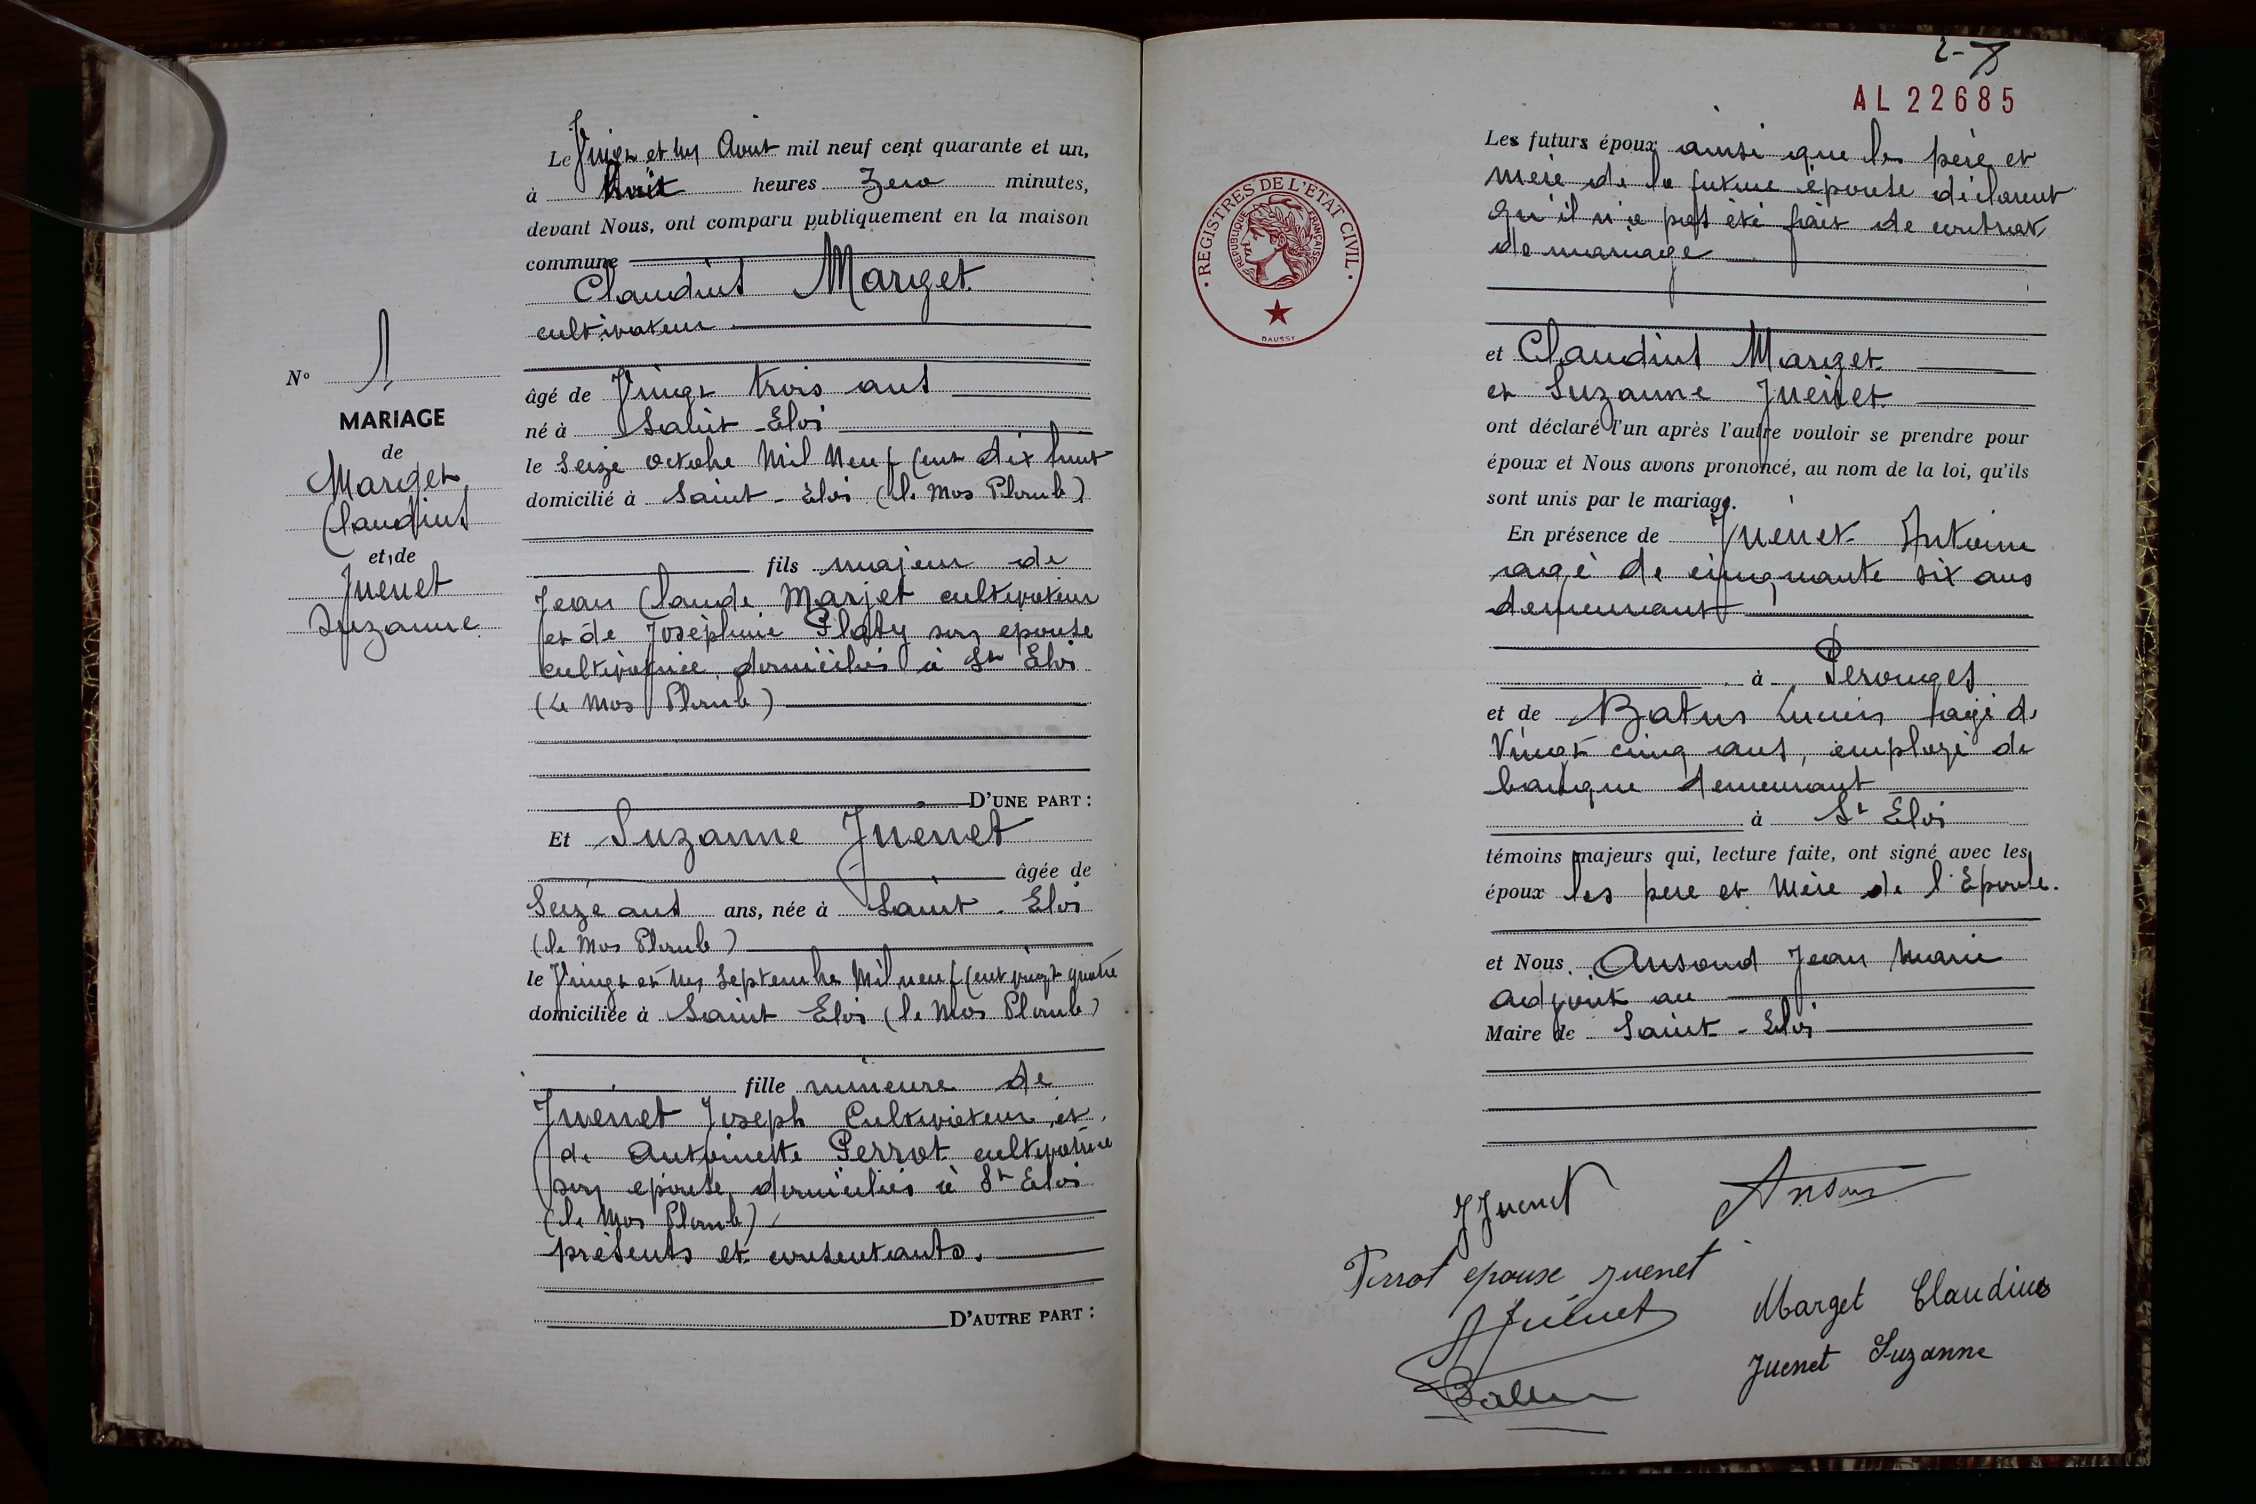 Le Vingt et un Aout mil neuf cent quarante et un,
à huit heures Zero minutes,
devant Nous, ont comparu publiquement en la maison
commune
Claudius Marget
cultivateur
âgé de Vingt trois ans
né à Saint-Eloi
le Seize octobre Mil Neuf Cent dix huit
domicilié à Saint-Eloi (le Mas Plomb)
fils majeur de
Jean Claude Marjet cultivateur
et de Joséphine Platy son epouse
cultivatrice, domiciliés à St Eloi
(Le Mas Plomb)
D'UNE PART :
Et Suzanne Juènet
âgée de
Seize ans ans, née à Saint-Eloi
(le Mas Plomb)
le Vingt et un Septembre Mil neuf Cent vingt quatre
domiciliée à Saint Eloi (le Mas Plomb)
fille mineure de
Juènet Joseph Cultivateur et
de Antoinette Perrot cultivatrice
son epouse, domiciliés à St Eloi
(le Mas Plomb)
présents et consentants.
D'AUTRE PART :
N° 1
MARIAGE
de
Marget
Claudius
et de
Juenet
Suzanne
AL 22685
REGISTRES DE L'ÉTAT CIVIL
RÉPUBLIQUE FRANÇAISE
DAUSSY
Les futurs époux ainsi que les père et
mère de la future épouse déclarent
qu'il n'a pas été fait de contrat
de mariage
et Claudius Marget
et Suzanne Juènet
ont déclaré l'un après l'autre vouloir se prendre pour
époux et Nous avons prononcé, au nom de la loi, qu'ils
sont unis par le mariage.
En présence de Juènet Antoine
agé de cinquante six ans
demeurant
à Perouges
et de Lucien agé de
Vingt cinq ans, employé de
banque demeurant
à St Eloi
témoins majeurs qui, lecture faite, ont signé avec les
époux les père et Mère de l'Epouse.
et Nous Ansond Jean Marie
adjoint au
Maire de Saint-Eloi
J Juenet
Perrot epouse Juenet
A Juènet
Marget Claudius
Juenet Suzanne